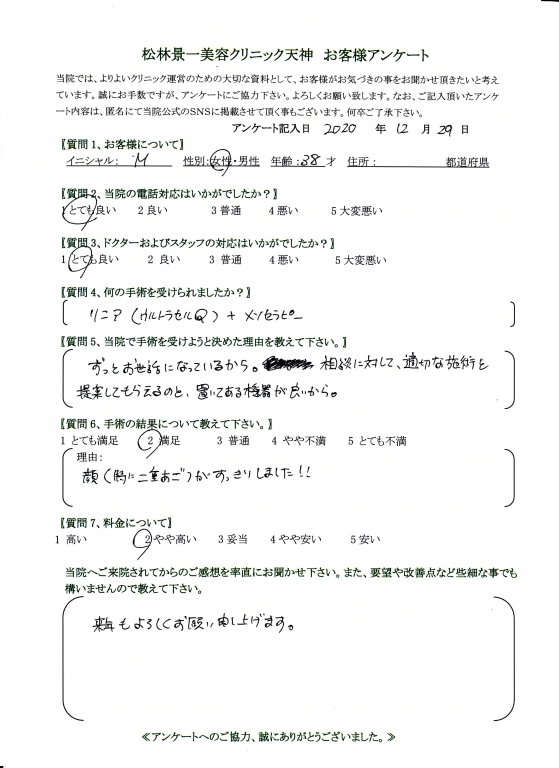 松林景一美容クリニック天神 お客様アンケート
当院では、よりよいクリニック運営のための大切な資料として、お客様がお気づきの事をお聞かせ頂きたいと考え
ています。誠にお手数ですが、アンケートにご協力下さい。よろしくお願い致します。なお、ご記入頂いたアンケ
ート内容は、匿名にて当院公式のSNSに掲載させて頂く事もございます。何卒ご了承下さい。
アンケート記入日 2020 年 12 月 29 日
〖質問1、お客様について〗
イニシャル： M 性別：女性・男性 年齢：38 才 住所： 都道府県
〖質問2、当院の電話対応はいかがでしたか？〗
1 とても良い 2 良い 3 普通 4 悪い 5 大変悪い
〖質問3、ドクターおよびスタッフの対応はいかがでしたか？〗
1 とても良い 2 良い 3 普通 4 悪い 5 大変悪い
〖質問4、何の手術を受けられましたか？〗
リニア（ウルトラセルQ）+ メソセラピー
〖質問5、当院で手術を受けようと決めた理由を教えて下さい。〗
ずっとお世話になっているから。 相談に対して、適切な施術を
提案してもらえるのと、置いてある機器が良いから。
〖質問6、手術の結果について教えて下さい。〗
1 とても満足 2 満足 3 普通 4 やや不満 5 とても不満
理由：
顔（特に二重あご）がすっきりしました!!
〖質問7、料金について〗
1 高い 2 やや高い 3 妥当 4 やや安い 5 安い
当院へご来院されてからのご感想を率直にお聞かせ下さい。また、要望や改善点など些細な事でも
構いませんので教えて下さい。
来年もよろしくお願い申し上げます。
≪アンケートへのご協力、誠にありがとうございました。≫